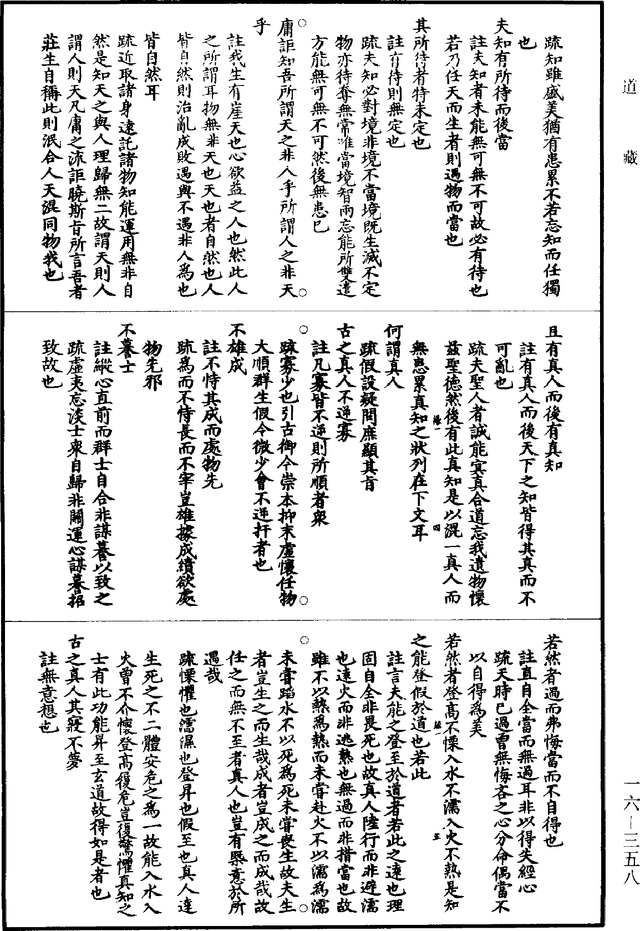 道藏
疏知雖盛美猶有患累不若忘知而任獨
也
夫知有所待而後當
註夫知者未能無可無不可故必有待也
若乃任天而生者則遇物而當也
其所待者特未定也
註有待則無定也
疏夫知必對境非境不當境既生滅不定
物亦待奪無常唯當境智兩忘能所雙遣
方能無可無不可然後無患巳
○
庸詎知吾所謂天之非人乎所謂人之非天
乎
註我生有崖天也心欲益之人也然此人
之所謂耳物無非天也天也者自然也人
皆自然則治亂成敗遇與不遇非人為也
皆自然耳
疏近取諸身遠託諸物知能運用無非自
然是知天之與人理歸無二故謂天則人
謂人則天凡庸之流詎曉斯旨所言吾者
莊生自稱此則泯合人天混同物我也
且有真人而後有真知
註有真人而後天下之知皆得其真而不
可亂也
疏夫聖人者誠能冥真合道忘我遺物懷
茲聖德然後有此真知是以混一真人而
無患累真知之狀列在下文耳
何謂真人
疏假設疑問庶顯其旨
古之真人不逆寡
註凡寡皆不逆則所順者衆
○
疏寡少也引古御今崇本抑末虛懷任物
大順群生假令微少曾不逆扞者也
不雄成
註不恃其成而處物先
疏為而不恃長而不宰豈雄據成績欲處
物先邪
不謩士
註縱心直前而群士自合非謀謩以致之
疏虛夷忘淡士衆自歸非關運心謀謩招
致故也
若然者過而弗悔當而不自得也
註直自全當而無過耳非以得失經心
疏天時已過曾無悔吝之心分命偶當不
以自得為美
若然者登高不慄入水不濡入火不熱是知
之能登假於道也若此
註言夫能之登至於道者若此之遠也理
固自全非畏死也故真人陸行而非避濡
也遠火而非逃熱也無過而非措當也故
雖不以熱為熱而未嘗赴火不以濡為濡
○
未嘗蹈水不以死為死未嘗喪生故夫生
者豈生之而生哉成者豈成之而成哉故
任之而無不至者真人也豈有槩意於所
遇哉
疏慄懼也濡濕也登昇也假至也真人達
生死之不二體安危之為一故能入水入
火曾不介懷登高履危豈復驚懼真知之
士有此功能昇至玄道故得如是者也
古之真人其寢不夢
註無意想也
一六—三五八